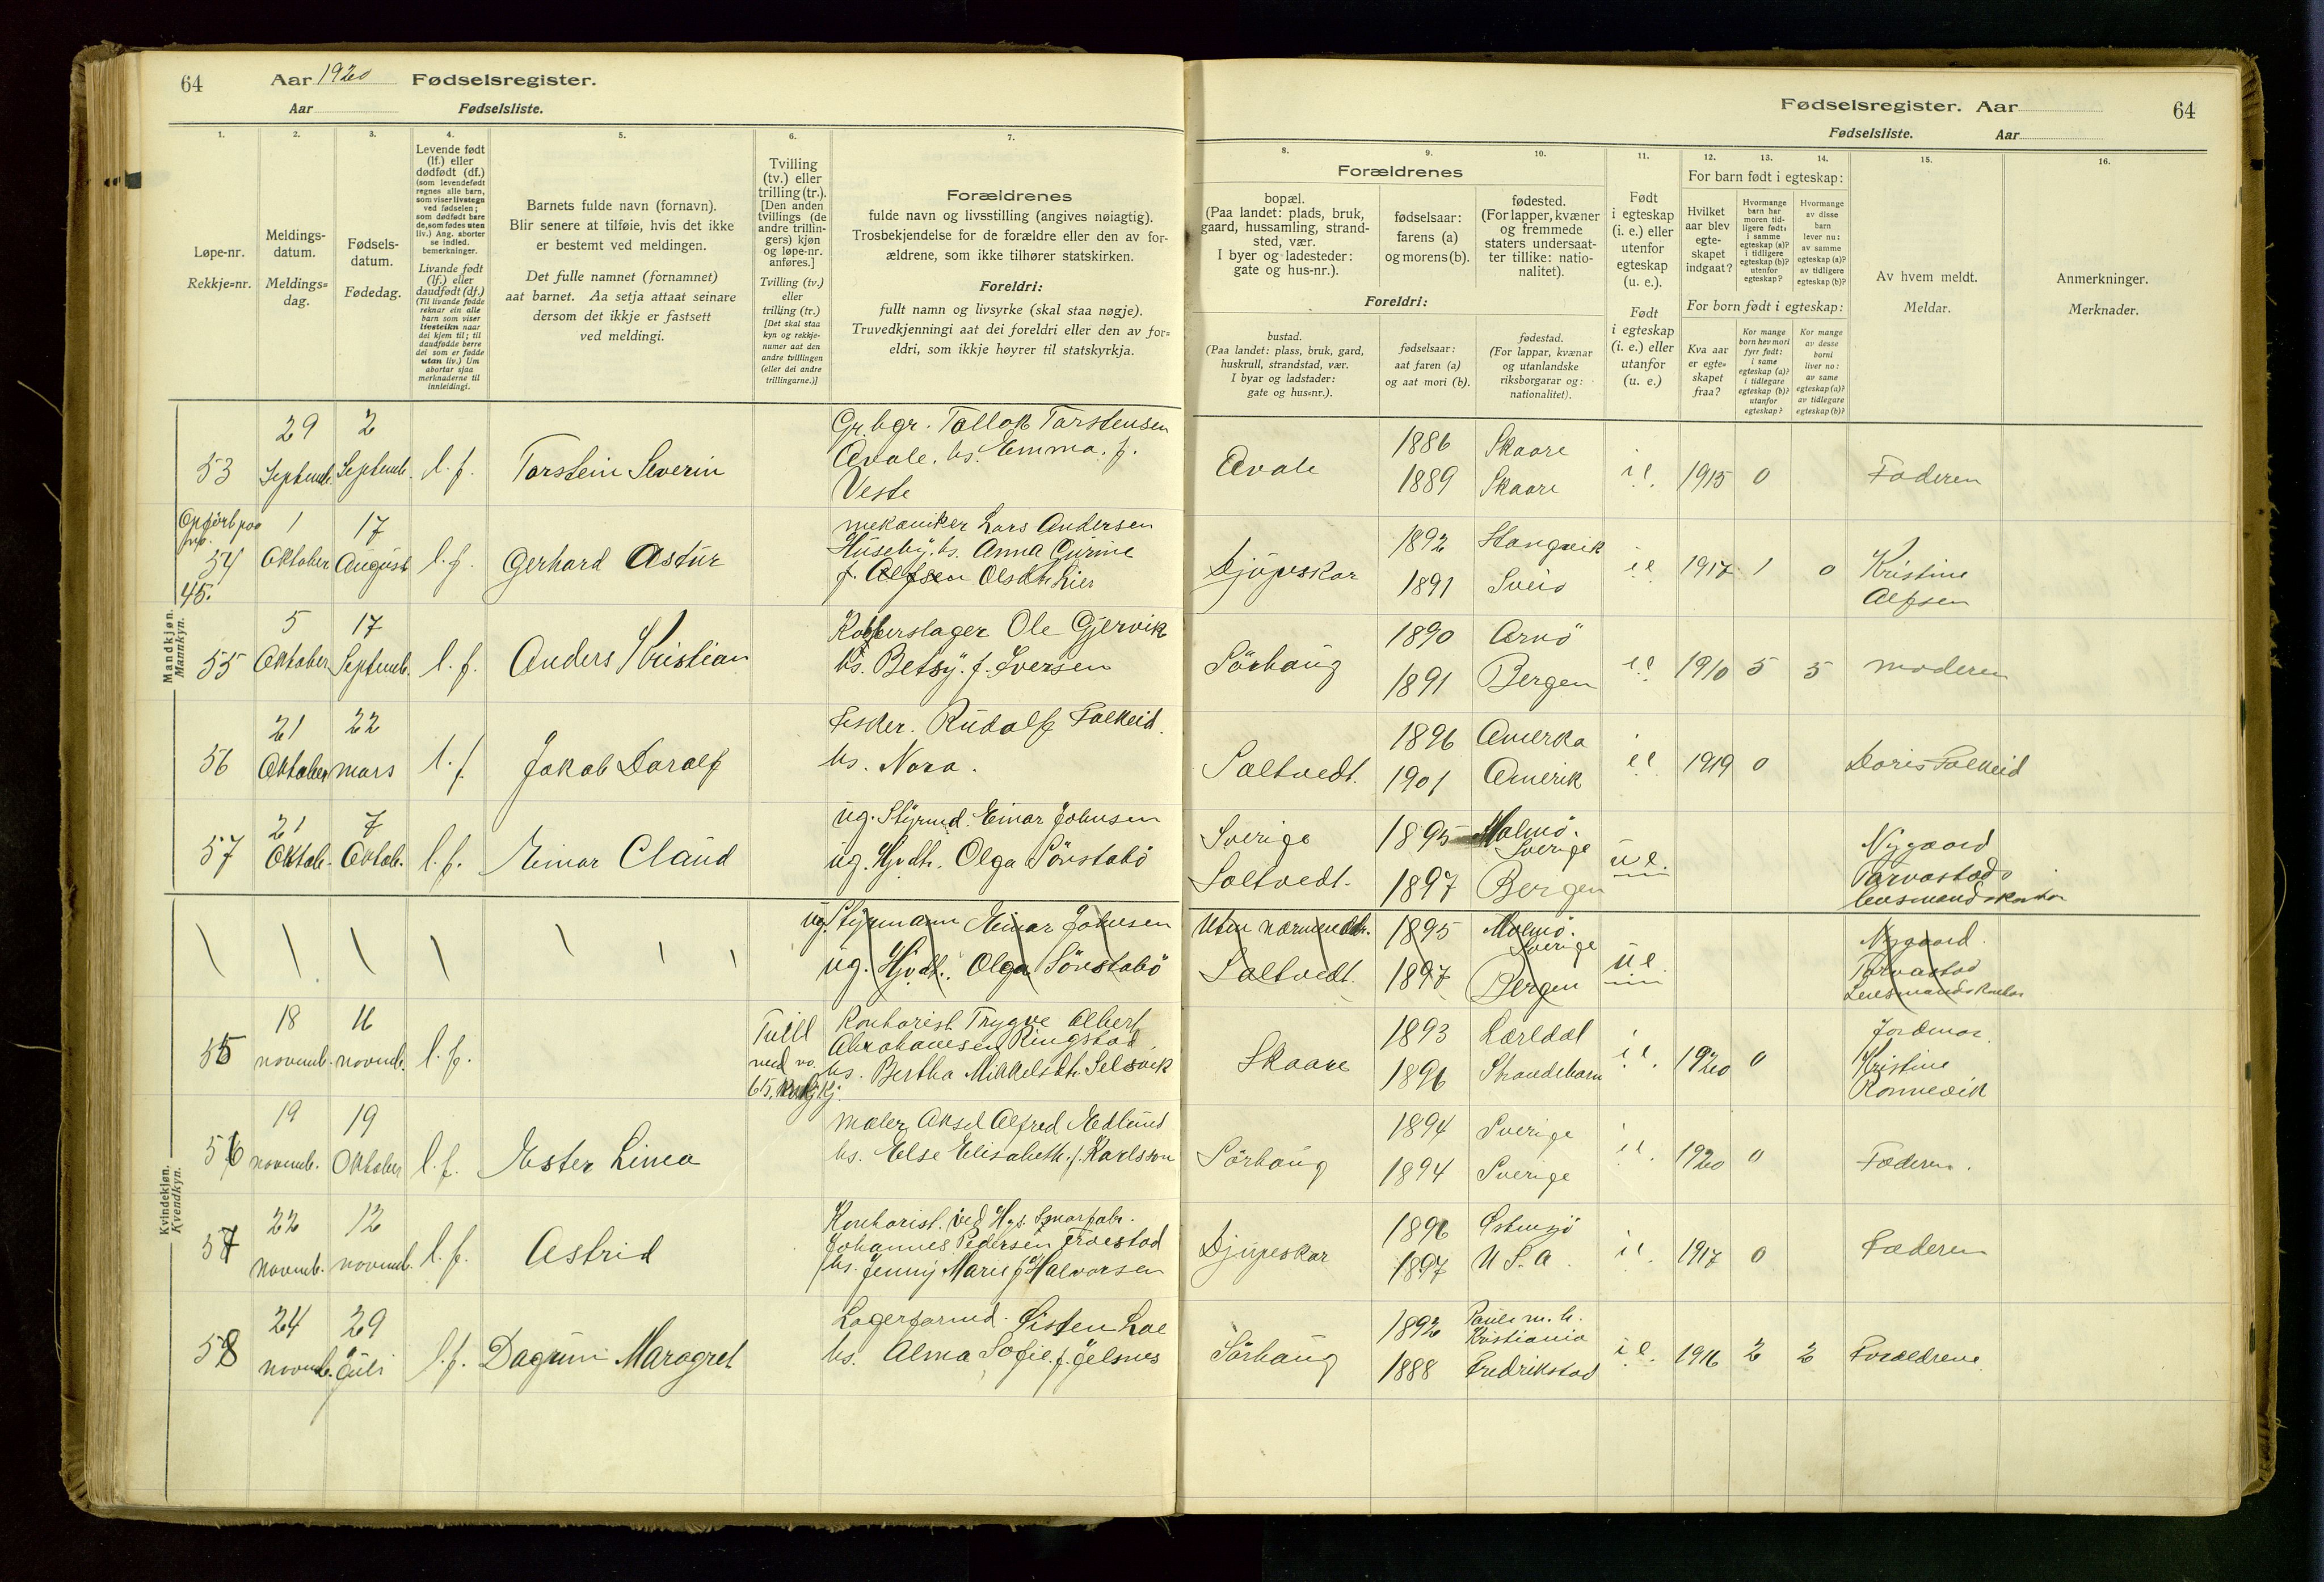 64
Aar 1920 Fødselsregister.
Aar Fødselsliste.
1.
2.
3.
4.
5.
6.
7.
Løpe-nr.
Rekkje=nr.
Meldings-
datum.
Meldings=
dag.
Fødsels-
datum.
Fødedag.
Levende født
(lf.) eller
dødfødt (df.)
(som levendefødt
regnes alle barn,
som viser livstegn
ved fødselen;
som dødfødt bare
de, som fødes uten
liv.) Ang. aborter
se indled.
bemerkninger.
Livande født
(lf.) eller
daudfødt (df.)
(Til livande fødde
reknar ein alle
barn som viser
livsteikn naar
dei kjem til; til
daudfødde berre
dei som er fødde
utan liv.) Um
abortar sjaa
merknaderne til
innleidingi.
Barnets fulde navn (fornavn).
Blir senere at tilføie, hvis det ikke
er bestemt ved meldingen.
Det fulle namnet (fornamnet)
aat barnet. Aa setja attaat seinare
dersom det ikkje er fastsett
ved meldingi.
Tvilling
(tv.) eller
trilling (tr.).
[Den anden
tvillings (de
andre trillin-
gers) kjøn
og løpe-nr.
anføres.]
Tvilling (tv.)
eller
trilling (tr.)
[Det skal staa
kyn og rekkje-
numer aat den
andre tvillingen
(eller dei andre
trillingarne.)]
Forældrenes
fulde navn og livsstilling (angives nøiagtig).
Trosbekjendelse for de forældre eller den av for-
ældrene, som ikke tilhører statskirken.
Foreldri:
fullt namn og livsyrke (skal staa nøgje).
Truvedkjenningi aat dei foreldri eller den av for=
eldri, som ikkje høyrer til statskyrkja.
Fødselsregister. Aar
64
Fødselsliste. Aar
8.
9.
10.
11.
12.
13.
14.
15.
16.
Forældrenes
bopæl.
(Paa landet: plads, bruk,
gaard, hussamling, strand-
sted, vær.
I byer og ladesteder:
gate og hus-nr.).
fødselsaar:
farens (a)
og morens (b).
fødested.
(For lapper, kvæner
og fremmede
staters undersaat-
ter tillike: natio-
nalitet).
Foreldri:
bustad.
(Paa landet: plass, bruk, gard,
huskrull, strandstad, vær.
I byar og ladstader:
gate og hus=nr.).
fødselsaar:
aat faren (a)
og aat mori (b).
fødestad.
(For lappar, kvænar
og utanlandske
riksborgarar og:
nationalitet).
Født
i egteskap
(i. e.) eller
utenfor
egteskap
(u. e.).
Født
i egteskap
(i. e.) eller
utanfor
(u. e.)
For barn født i egteskap:
Hvilket
aar blev
egte-
skapet
indgaat?
Hvormange
barn har
moren tid-
ligere født:
i samme
egteskap (a)?
i tidligere
egteskap (b)?
utenfor
egteskap?
Hvormange
av disse
barn
lever nu:
av samme
egteskap (a)?
av tidligere
egteskap (b)?
For born født i egteskap:
Kva aar
er egte=
skapet
fraa?
Kor mange
born hev mori
fyrr født:
i same
egteskap (a)?
i tidlegare
egteskap (b)?
utanfor
egteskap?
Kor mange
av desse
borni
liver no:
av same
egteskap (a)?
av tidlegare
egteskap (b)?
Av hvem meldt.
Meldar.
Anmerkninger.
Merknader.
Mandkjøn.
Mannkyn.
53 29 Septemb. 2 Septemb. l. f. Torstein Severin
Gr. bgr. Tollok Torstensen
Avale. hs. Emma. f.
Veste
Avale 1886 Skaare
1889 Skaare i e. 1915 0 Faderen
Opført paa
54 1 Oktober 17 August l. f. Gerhard Astur
45.
mekaniker Lars Andersen
Huseby. hs. Anna Gurine
f. Alfsen Olsdtr. Lier
Djupeskar 1892 Stangvik
1891 Sveio i e 1917 1 0 Kristine
Alfsen
55 5 Oktober 17 Septemb. l. f. Anders Kristian
Kobberslager Ole Gjervik
hs. Betsy. f. Iversen
Sörhaug 1890 Arnö
1891 Bergen i e 1910 5 5 moderen
56 21 Oktober 22 mars l. f. Jakob Doralf
fisker. Rudolf Falkeid.
hs. Nora.
Saltvedt. 1896 Amerka
1901 Amerik i e 1919 0 Doris Falkeid
57 21 Oktob. 7 Oktob. l. f. Einar Claud
ug. Styrmd. Einar Johnsen
ug. Hjvdtr. Olga Sörstabö
Sverige 1895 Malmö.
Sverige
Saltvedt. 1897 Bergen u e.
Nygaard
Torvastad
lensmandskontor
ug. Styrmann Einar Johnsen
ug. Hjvdt. Olga Sörstabö
Uten nærmere adr. 1895 Malmö.
Sverige
Saltvedt. 1897 Bergen u e.
Nygaard.
Torvastad
Lensmandskontor
Kvindekjøn.
Kvendkyn.
55 18 novemb. 16 novemb. l. f.
Tvill
med no.
65,
Kontorist Trygve Albert
Abrahamsen Ringstad.
hs. Bertha Mikkelsdtr. Selsvik
Skaare 1893 Lærdal
1896 Strandebarm i e. 1920 0 Jordmor
Kristine
Rønnevik
56 19 novemb. 19 Oktober l. f. Ester Linea
maler Aksel Alfred Edlund
hs. Else Elisabeth. f. Karlsson
Sörhaug 1894 Sverige
1894 Sverige i e. 1920 0 Faderen.
57 22 novemb. 12 novemb. l. f. Astrid
Kontorist. ved Hgs.
Johannes Pedersen
hs. Jenny Marie f. Halvorsen
Djupeskar 1896 Ostensjö
1897 U S. a. i e. 1917 0 Faderen
58 24 novemb. 29 Juli l. f. Dagruni Maragret
Lagerformd. Sisten Loe
hs. Alma Sofie. f. Jelsnes
Sörhaug 1892 Paules m. h.
Kristiania
1888 Fredrikstad i e. 1916 2 2 Forældrene